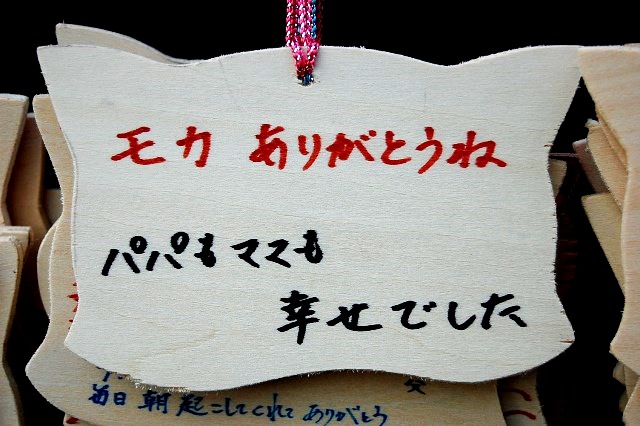 モカ ありがとうね
パパもママも
幸せでした
毎日 朝 起こしてくれて ありがとう